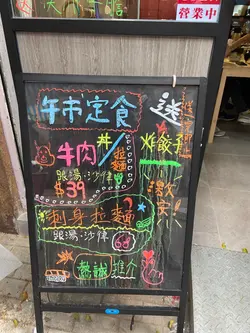 營業中
午市定食
牛肉丼/拉麵
跟湯·沙律
$39
送
炸餃子
激穴!
刺身拉麵
跟湯·沙律
熱誠推介